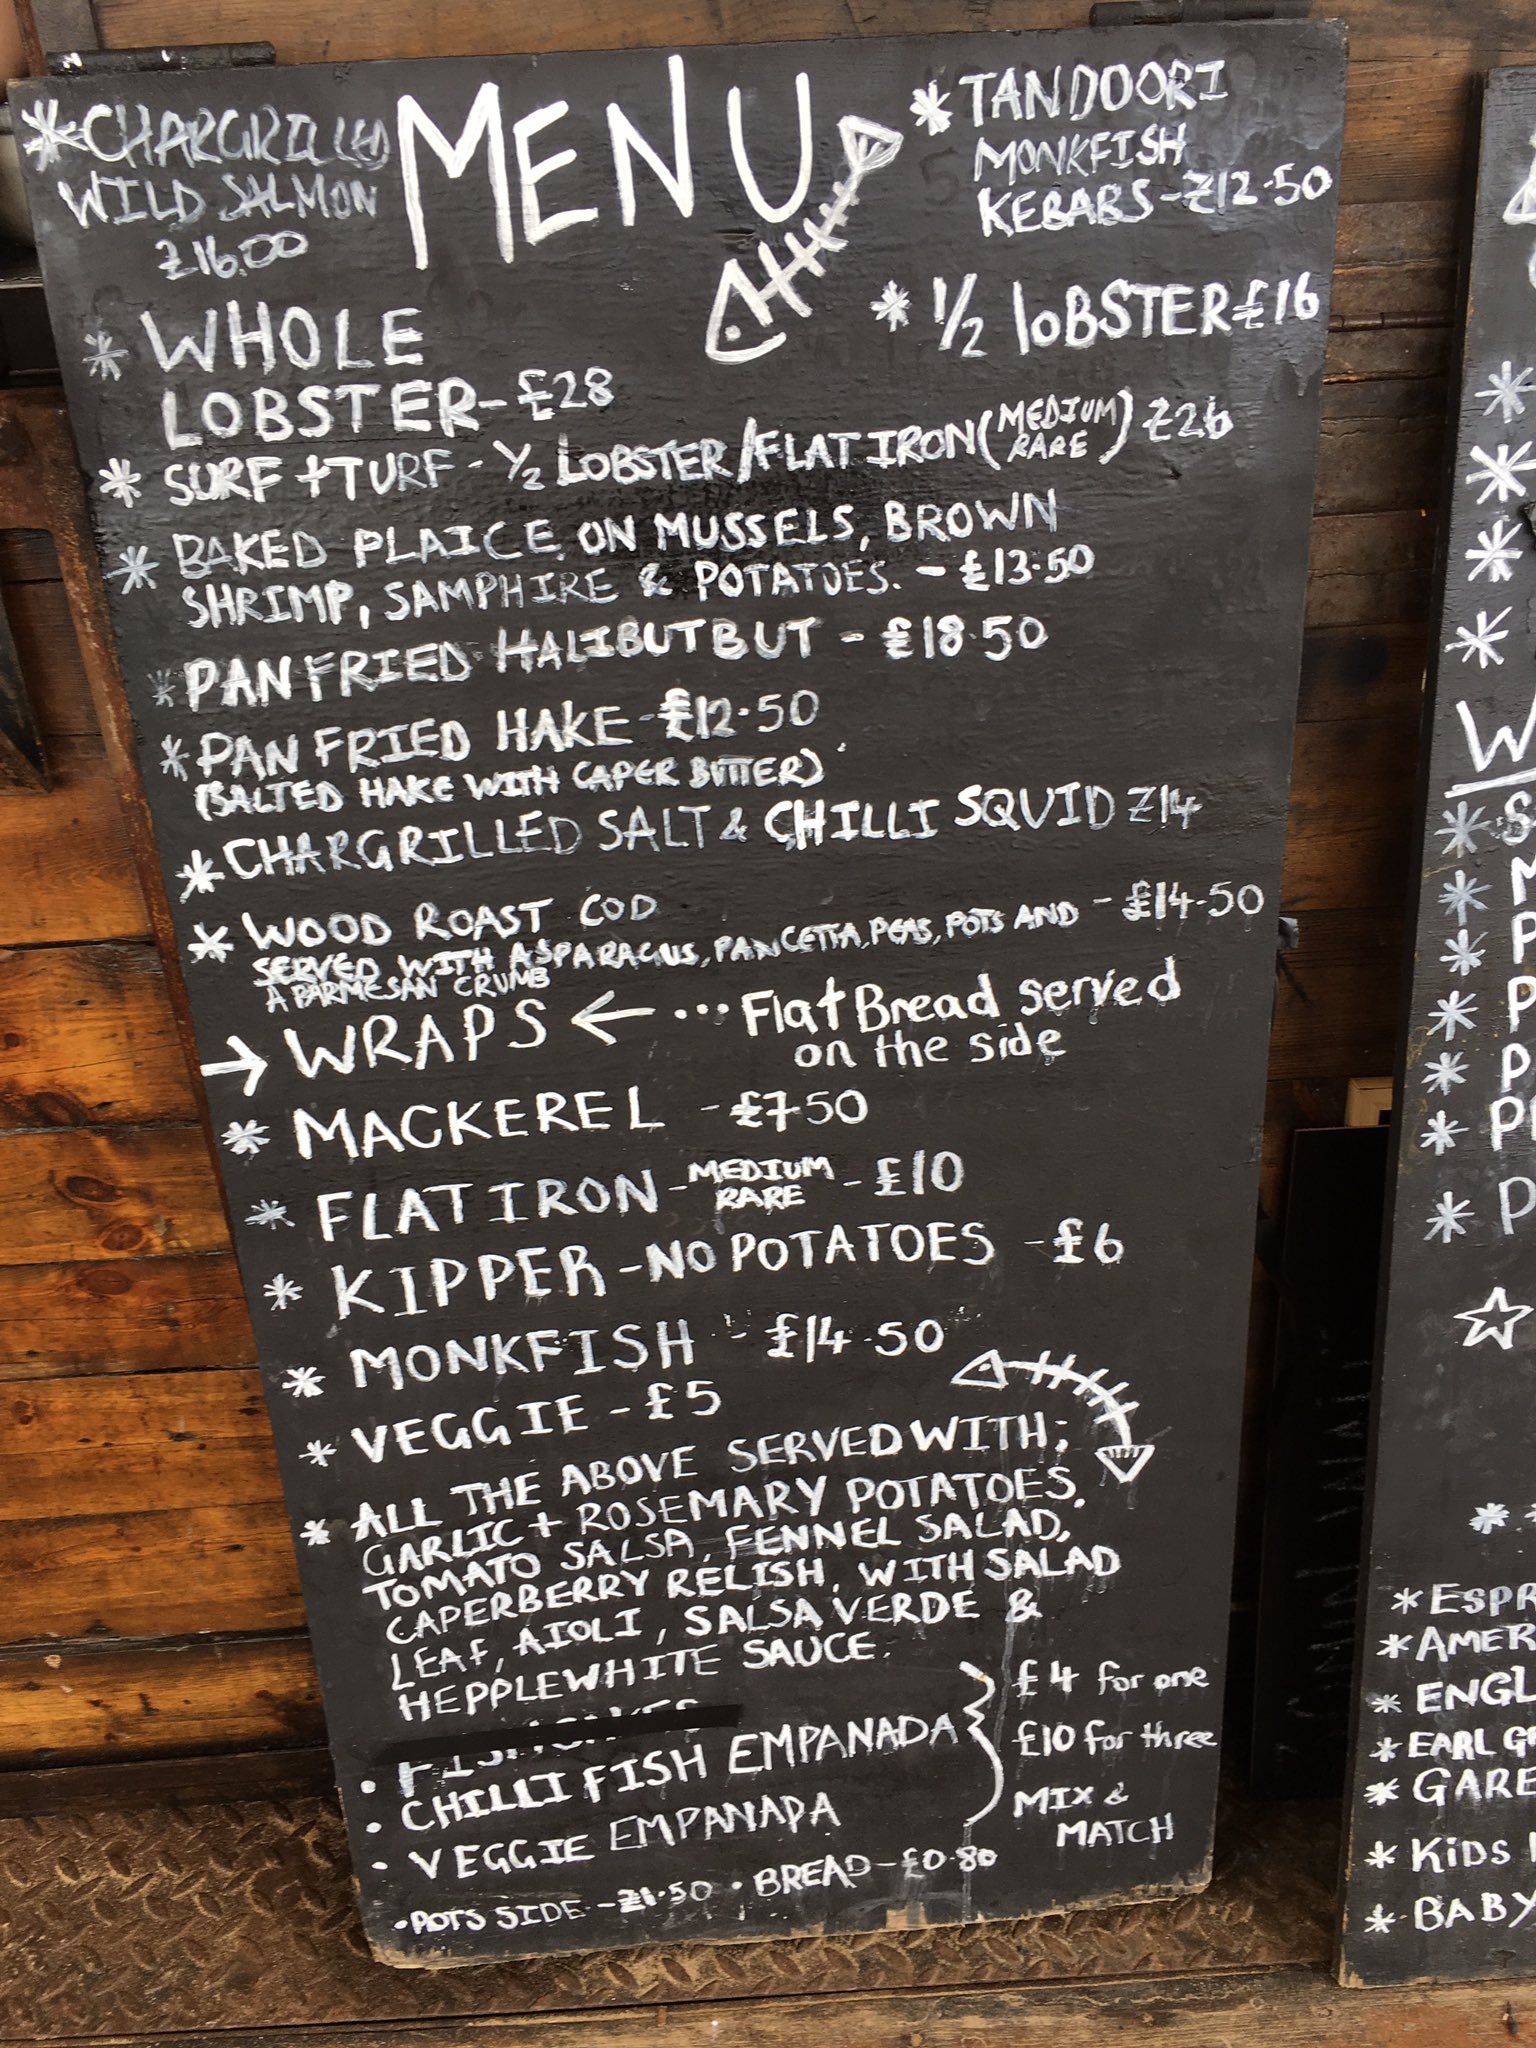 MENU
* CHARGRILLED
WILD SALMON
£16.00
* TANDOORI
MONKFISH
KEBABS - £12.50
* WHOLE
LOBSTER - £28
* 1/2 lOBSTER £16
* SURF + TURF - 1/2 LOBSTER/FLAT IRON (MEDIUM RARE) £26
* BAKED PLAICE ON MUSSELS, BROWN
SHRIMP, SAMPHIRE & POTATOES. - £13.50
* PAN FRIED HALIBUT BUT - £18.50
* PAN FRIED HAKE - £12.50
(SALTED HAKE WITH CAPER BUTTER)
* CHARGRILLED SALT & CHILLI SQUID £14
* WOOD ROAST COD
SERVED WITH ASPARAGUS, PANCETTA, PEAS, POTS AND - £14.50
A PARMESAN CRUMB
→ WRAPS ← ... Flat Bread served
on the side
* MACKEREL - £7.50
* FLAT IRON - MEDIUM RARE - £10
* KIPPER - NO POTATOES - £6
* MONKFISH - £14.50
* VEGGIE - £5
* ALL THE ABOVE SERVED WITH;
GARLIC + ROSEMARY POTATOES,
TOMATO SALSA, FENNEL SALAD,
CAPERBERRY RELISH, WITH SALAD
LEAF, AIOLI, SALSA VERDE &
HEPPLEWHITE SAUCE.
• CHILLI FISH EMPANADA
• VEGGIE EMPANADA
£4 for one
£10 for three
MIX &
MATCH
• POTS SIDE - £1.50 • BREAD - £0.80
* ESPR
* AMER
* ENGL
* EARL G
* GARE
* KiDS
* BABY